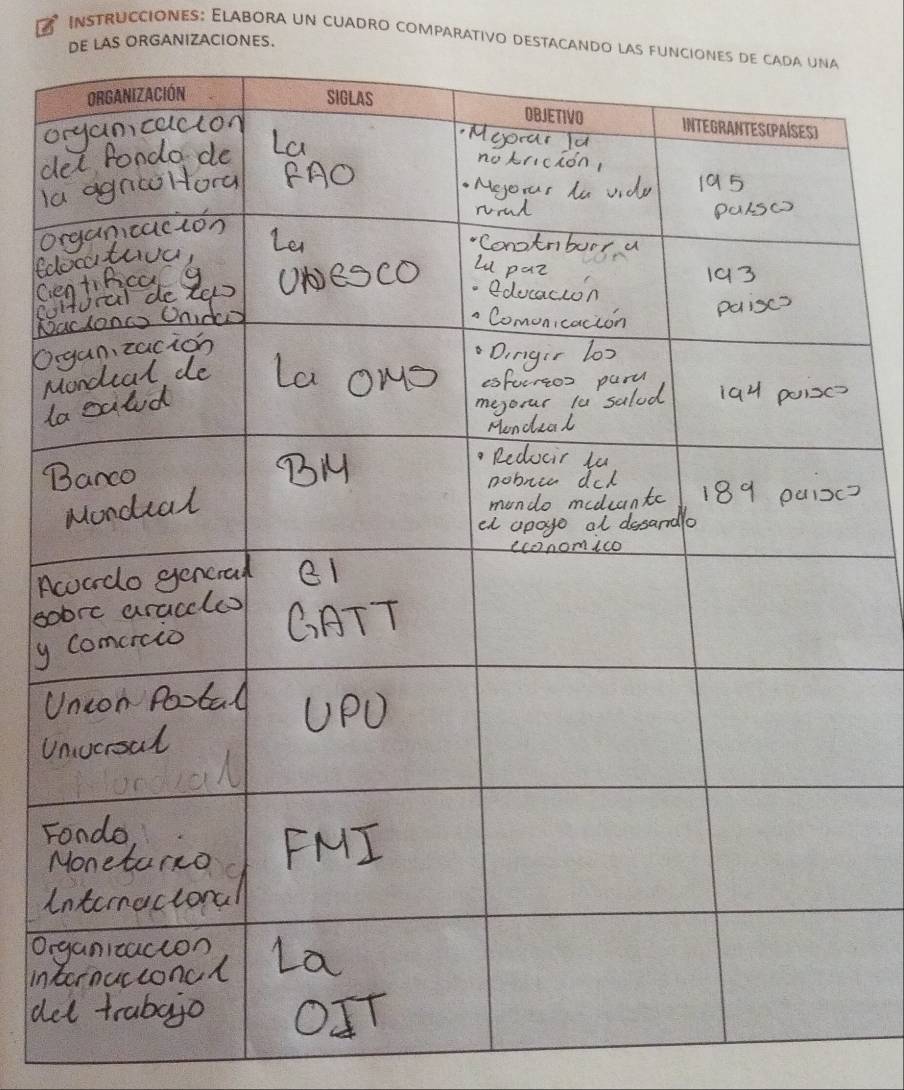 INSTRUCCIONES: ELABORA UN CUADRO COMPARATIVO DESTACANDO LAS FUNCIONES DE CADA UNA
DE LAS ORGANIZACIONES.
ORGANIZACIÓN SIGLAS OBJETIVO INTEGRANTES(PAÍSES)
organicacion
del fondo de
la agricoltora
La
FAO
•Mejorar la
notrición,
•Mejorar la vida
rural
195
paises
organicación
Edocativa,
Cientifica y
coltoral de las
Naciones Unidas
La
UNESCO
•Constriborr a
la paz
•educación
•Comonicación
193
paises
Organización
Mondial de
la salud
La OMS
•Dirigir los
esfuerzos para
mejorar la salud
Mondial
194 paises
Banco
Mondial
BM
•Reducir la
pobreza del
mondo mediante
el apoyo al desarrollo
economico
189 paises
Acuerdo general
sobre aracceles
y comercio
El
GATT
Union Postal
Universal
UPU
Mondial
Fondo
Monetario
internacional
FMI
Organizacion
internacional
del trabajo
La
OIT